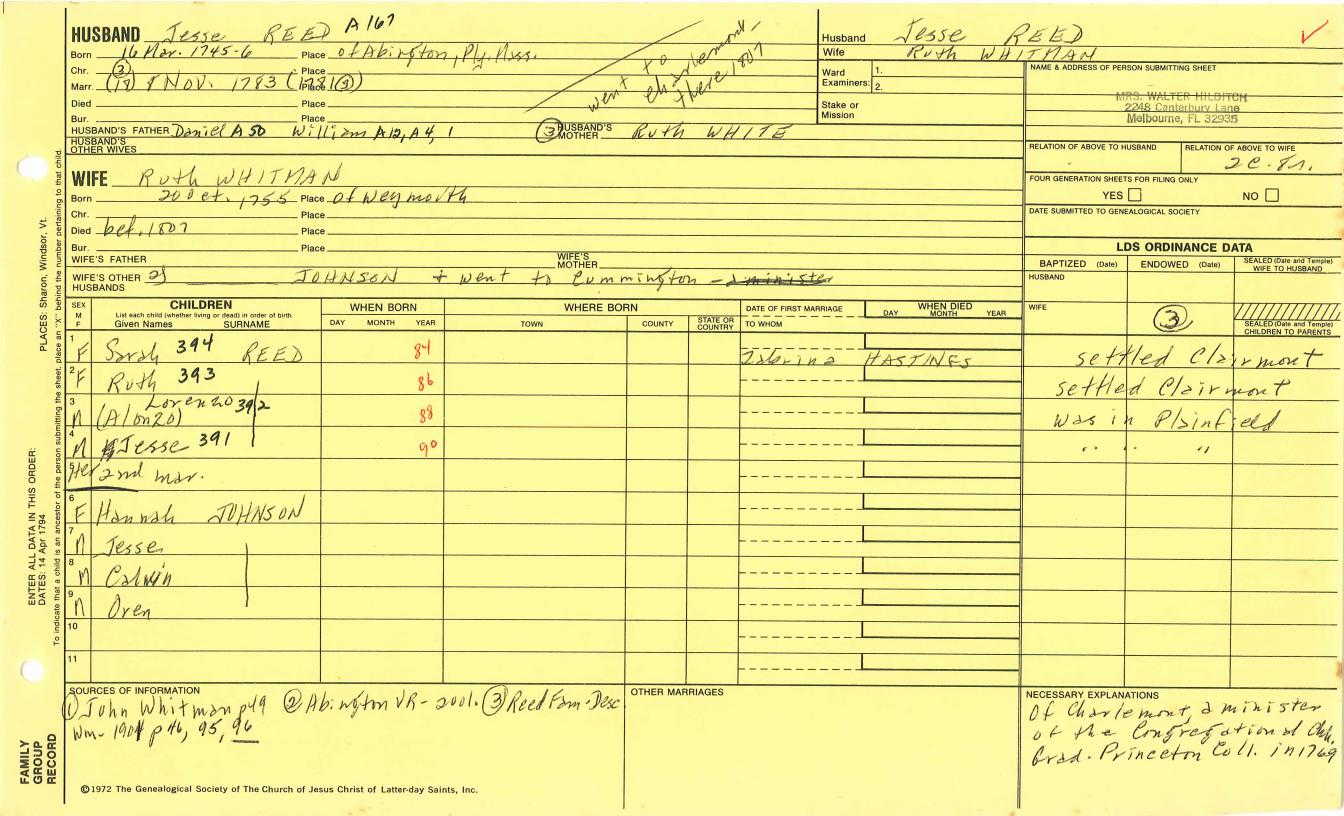 HUSBAND Jesse REED A167
Born 16 Mar. 1745-6 Place of Abington, Ply. Mass.
Chr. (3) Place
Marr. (18) 8 Nov. 1783 (1781(3)) Place
Died Place
Bur. Place
went to Charlemont- there 1807
HUSBAND'S FATHER Daniel A50 William A12, A4, 1 (3) HUSBAND'S MOTHER Ruth WHITE
HUSBAND'S OTHER WIVES
Husband Jesse REED
Wife Ruth WHITMAN
Ward Examiners: 1.
2.
Stake or Mission
NAME & ADDRESS OF PERSON SUBMITTING SHEET
MRS. WALTER HILDITCH
2248 Canterbury Lane
Melbourne, FL 32935
RELATION OF ABOVE TO HUSBAND
RELATION OF ABOVE TO WIFE
2c. 8r.
FOUR GENERATION SHEETS FOR FILING ONLY
YES NO
DATE SUBMITTED TO GENEALOGICAL SOCIETY
WIFE Ruth WHITMAN
Born 20 Oct. 1755 Place of Weymouth
Chr. Place
Died bef. 1807 Place
Bur. Place
WIFE'S FATHER WIFE'S MOTHER
WIFE'S OTHER HUSBANDS 2) JOHNSON + went to Cummington - a minister
LDS ORDINANCE DATA
BAPTIZED (Date) ENDOWED (Date) SEALED (Date and Temple) WIFE TO HUSBAND
HUSBAND
WIFE (3)
SEALED (Date and Temple) CHILDREN TO PARENTS
SEX M F CHILDREN WHEN BORN WHERE BORN DATE OF FIRST MARRIAGE WHEN DIED
List each child (whether living or dead) in order of birth.
Given Names SURNAME DAY MONTH YEAR TOWN COUNTY STATE OR COUNTRY TO WHOM DAY MONTH YEAR
1 F Sarah 394 REED 84 HASTINES settled Clairmont
2 F Ruth 393 86 settled Clairmont
3 M Lorenzo 392 (Alonzo) 88 was in Plainfield
4 M Jesse 391 90 " " "
5 Her 2nd mar.
6 F Hannah JOHNSON
7 M Jesse
8 M Calvin
9 M Oren
10
11
SOURCES OF INFORMATION
(1) John Whitman p49 (2) Abington VR- 2001. (3) Reed Fam-Desc
Wm- 1901 p 46, 95, 96
OTHER MARRIAGES
NECESSARY EXPLANATIONS
Of Charlemont, a minister
of the Congregational Chh.
Grad. Princeton Coll. in 1769
©1972 The Genealogical Society of The Church of Jesus Christ of Latter-day Saints, Inc.
FAMILY GROUP RECORD
ENTER ALL DATA IN THIS ORDER:
DATES: 14 Apr 1794
PLACES: Sharon, Windsor, Vt.
To indicate that a child is an ancestor of the person submitting the sheet, place an "X" behind the number pertaining to that child.